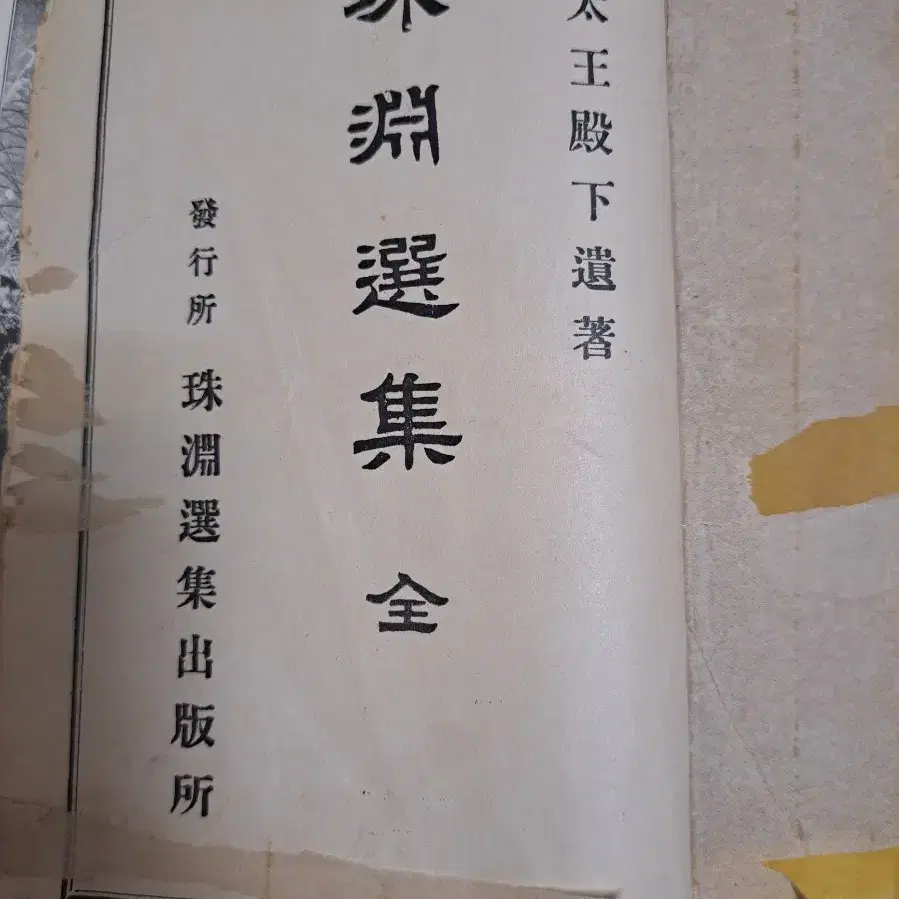 太王殿下遺著
珠淵選集 全
發行所 珠淵選集出版所